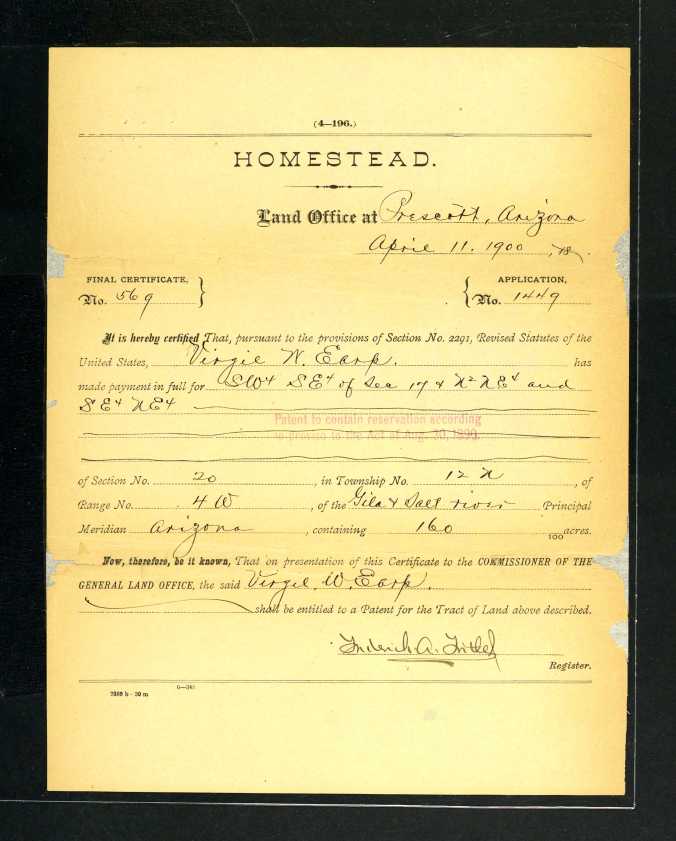 (4—196.)
HOMESTEAD.
Land Office at Prescott, Arizona
April 11. 1900, 18
FINAL CERTIFICATE, No. 569 } { APPLICATION, No. 1449
It is hereby certified That, pursuant to the provisions of Section No. 2291, Revised Statutes of the
United States, Virgil W. Earp. has
made payment in full for SW4 SE4 of Sec 17 & N2 NE4 and
SE4 NE4
Patent to contain reservation according
to proviso to the Act of Aug. 30, 1890.
of Section No. 20, in Township No. 12 N, of
Range No. 4 W, of the Gila & Salt river Principal
Meridian Arizona, containing 160 100 acres.
Now, therefore, be it known, That on presentation of this Certificate to the COMMISSIONER OF THE
GENERAL LAND OFFICE, the said Virgil. W. Earp.
shall be entitled to a Patent for the Tract of Land above described.
Frederick A. Tritle Jr
Register.